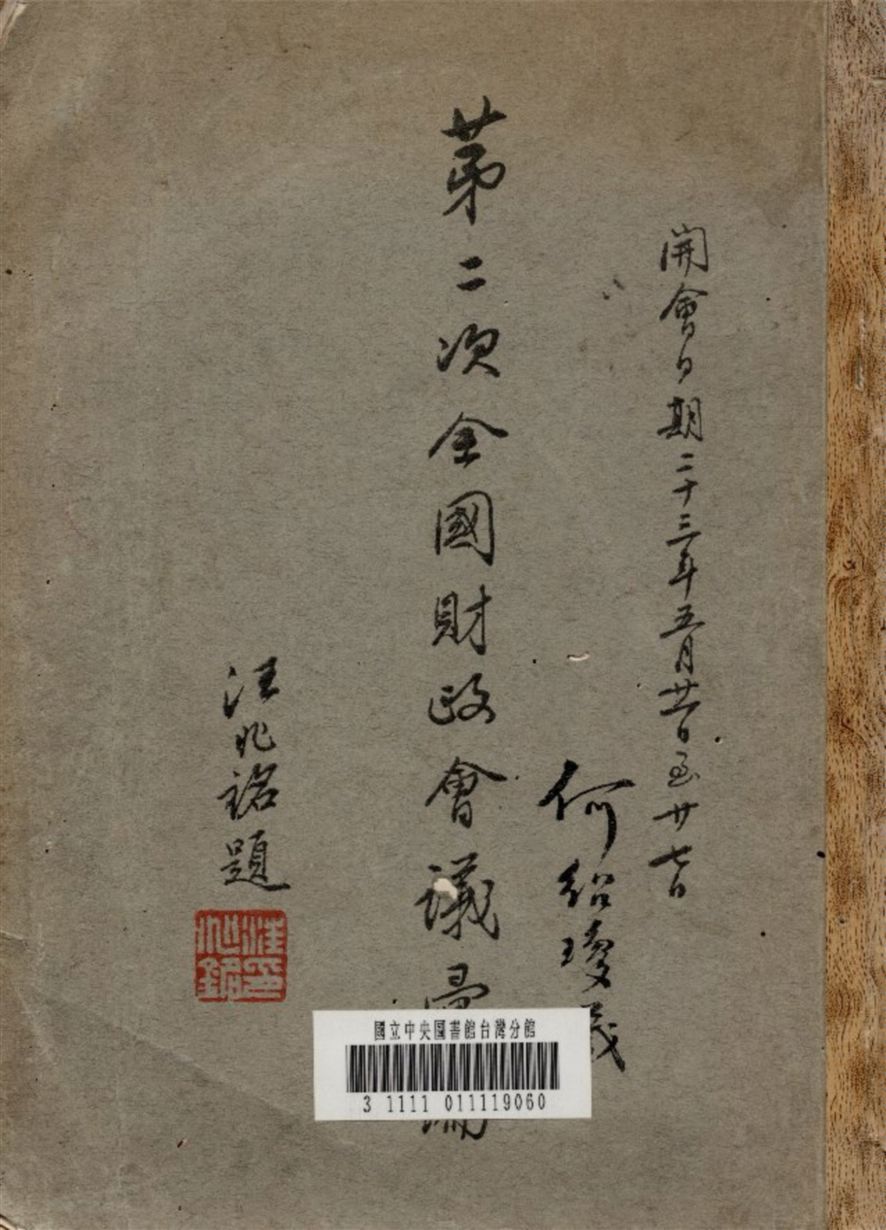 開會日期二十三年五月廿一日至廿七日
何紹瓊
第二次全國財政會議彙編
汪兆銘題
汪兆銘印
國立中央圖書館台灣分館
3 1111 011119060